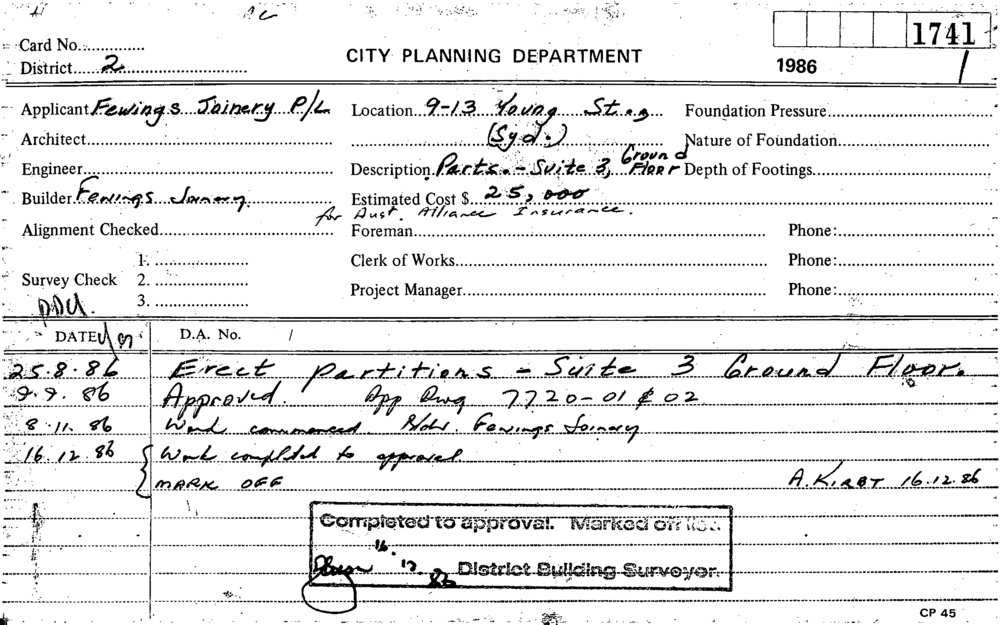 Card No.
District 2
CITY PLANNING DEPARTMENT
1741
1986 /
Applicant Fewings Joinery P/L Location 9-13 Young St. Foundation Pressure
Architect (Syd.) Nature of Foundation
Engineer Description Parts. - Suite 3, Ground Floor Depth of Footings
Builder Fewings Joinery Estimated Cost $ 25,000
for Aust. Alliance Insurance.
Alignment Checked Foreman Phone:
1. Clerk of Works Phone:
Survey Check 2.
3. Project Manager Phone:
DATE D.A. No. /
25.8.86 Erect partitions - Suite 3 Ground Floor.
9.9.86 Approved. App Dwg 7720-01 & 02
8.11.86 Work commenced. Bldr. Fewings Joinery
16.12.86 Work completed to approval
MARK OFF A. KIRBY 16.12.86
Completed to approval. Marked off list.
16.12.86 District Building Surveyor.
CP 45